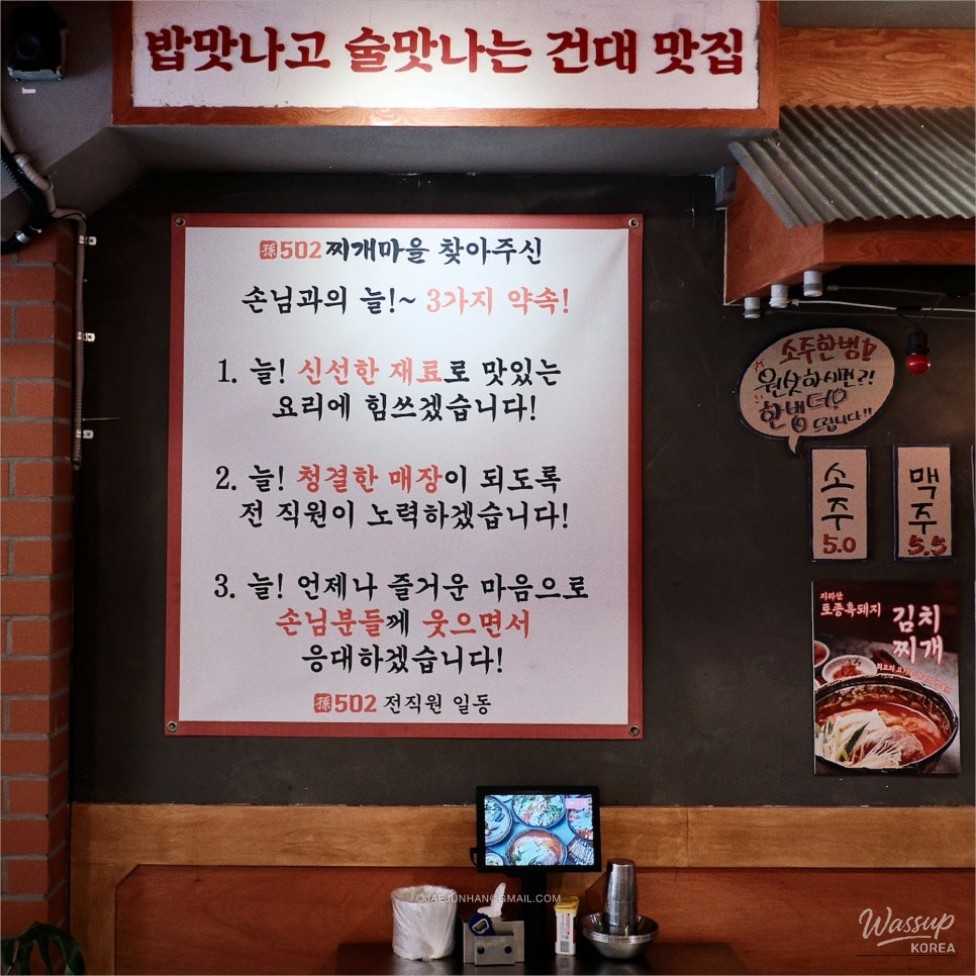 밥맛나고 술맛나는 건대 맛집
孫502 찌개마을 찾아주신
손님과의 늘!~ 3가지 약속!
1. 늘! 신선한 재료로 맛있는
요리에 힘쓰겠습니다!
2. 늘! 청결한 매장이 되도록
전 직원이 노력하겠습니다!
3. 늘! 언제나 즐거운 마음으로
손님분들께 웃으면서
응대하겠습니다!
孫502 전직원 일동
소주한병
원샷하시면?!
한병더
드립니다!!
소주
5.0
맥주
5.5
지리산
토종흑돼지
김치
찌개
JAEJUNHAN@GMAIL.COM
Wassup
KOREA